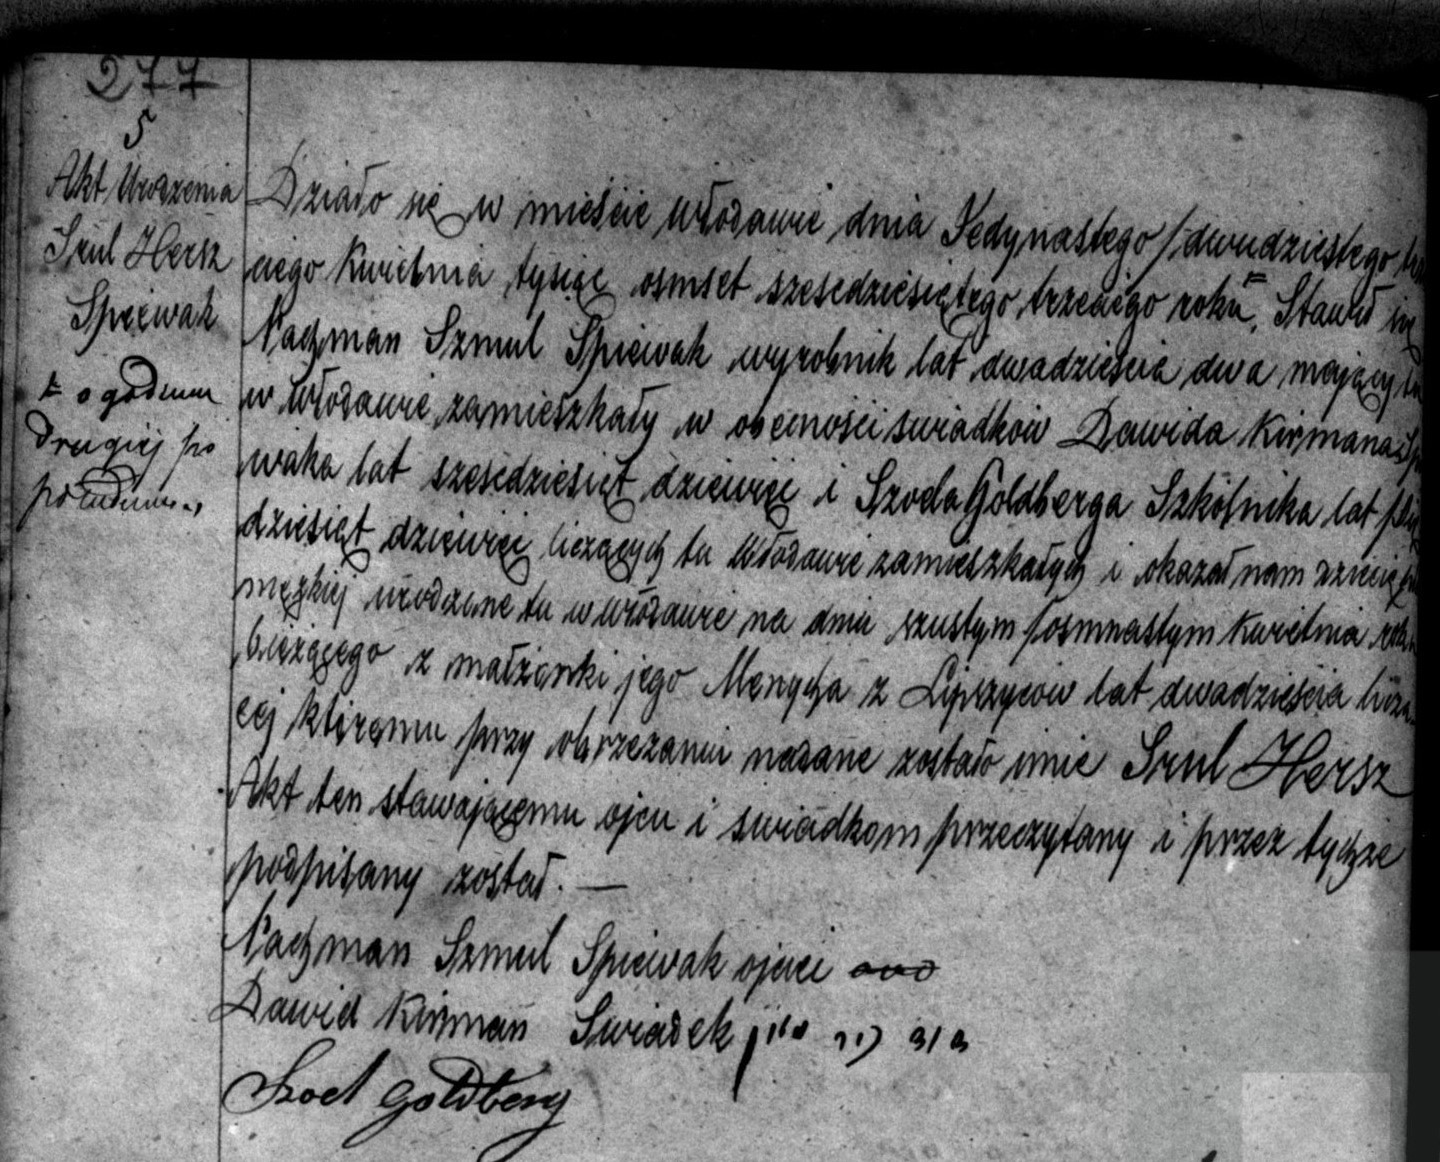 277
5
Akt Urodzenia
Srul Hersz
Spiewak
o godzinie
drugiej po
południu
Działo się w mieście Włodawie dnia Jedynastego / dwudziestego
ciego Kwietnia tysiąc osmset szesedziesiątego trzeciego roku, Stawił się
Nachman Szmul Spiewak wyrobnik lat dwadzieścia dwa mający tu
w Włodawie zamieszkały w obecności swiadków Dawida Kirmana
waka lat szesedziesiąt dziewięć i Szoela Goldberga Szkólnika lat
dziesiąt dziewięć liczących tu Włodawie zamieszkałych i okazał nam dziecię
męzkiej urodzone tu w Włodawie na dniu szustym / osmnastym Kwietnia
bieżącego z małżonki jego Menycha z Lipszyców lat dwadzieścia
cej któremu przy obrzezaniu nadane zostało imie Srul Hersz
Akt ten stawającemu ojcu i swiadkom przeczytany i przez tychże
podpisany został. —
Nachman Szmul Spiewak ojciec
Dawid Kirman Swiadek
Szoel Goldberg